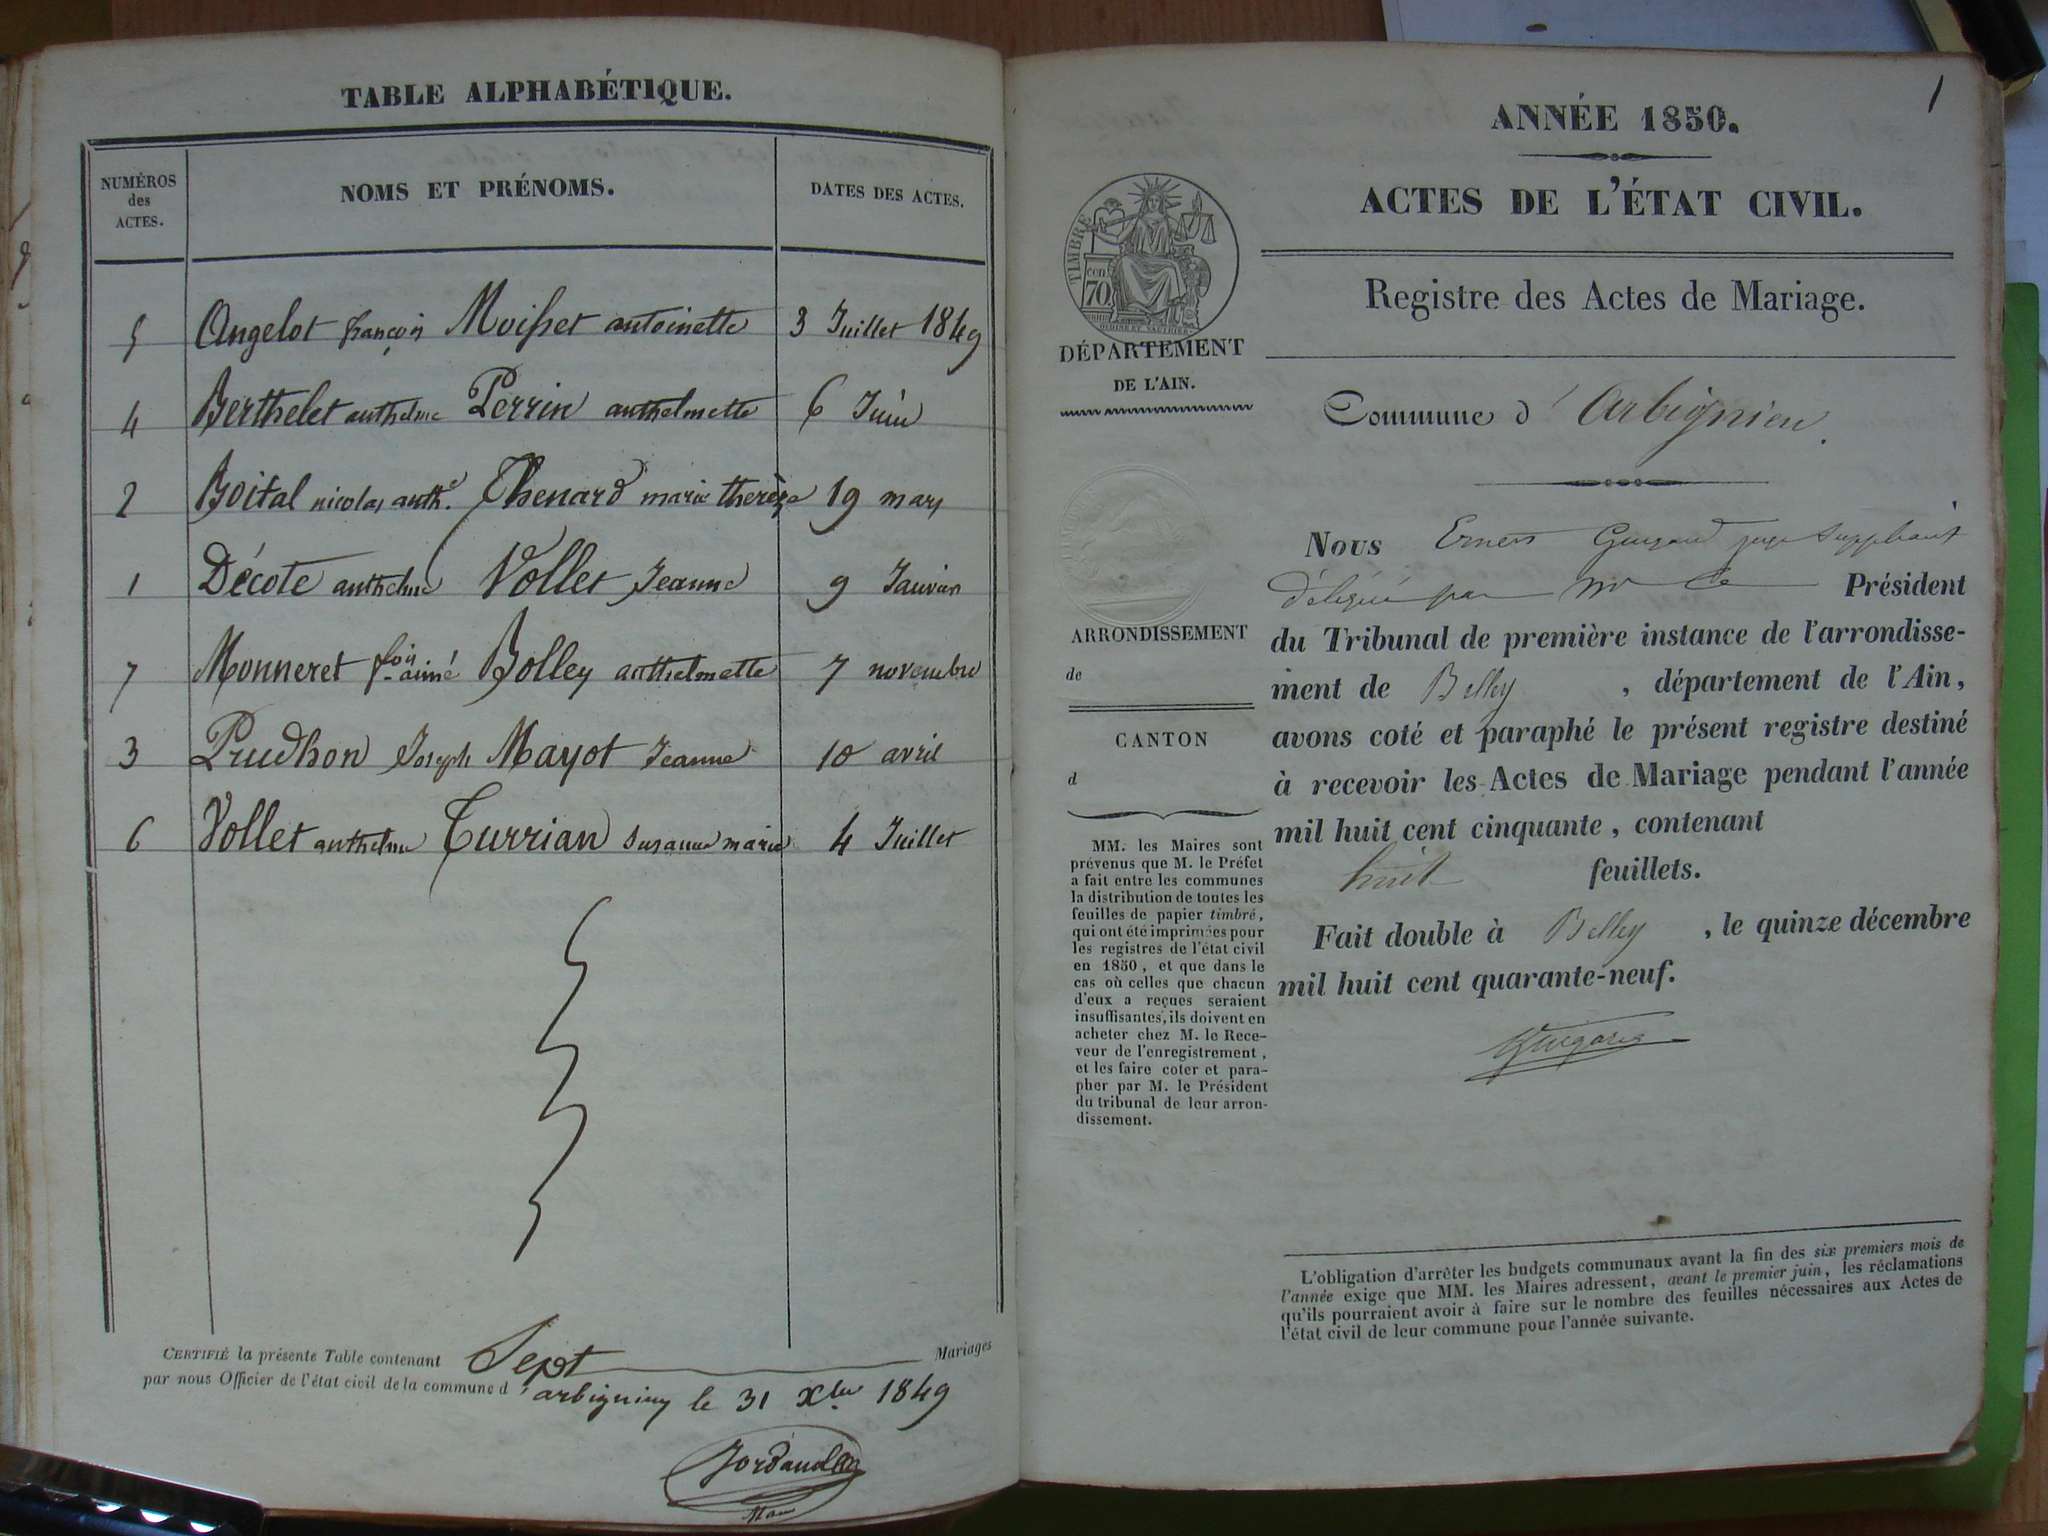 TABLE ALPHABÉTIQUE.
NUMÉROS des ACTES.
NOMS ET PRÉNOMS.
DATES DES ACTES.
5 Angelot françois Moisset antoinette 3 Juillet 1849
4 Berthelet anthelme Perrin anthelmette 6 Juin
2 Boital nicolas anthe. Thenard marie therèze 19 mars
1 Décote anthelme Vollet Jeanne 9 Janvier
7 Monneret fois aimé Bolley anthelmette 7 novembre
3 Prudhon Joseph Mayot Jeanne 10 avril
6 Vollet anthelme Turrian susanne marie 4 Juillet
CERTIFIÉ la présente Table contenant Sept Mariages
par nous Officier de l'état civil de la commune d'arbignieu le 31 Xbre 1849
Maire
1
ANNÉE 1850.
ACTES DE L'ÉTAT CIVIL.
Registre des Actes de Mariage.
TIMBRE
70
DÉPARTEMENT
DE L'AIN.
Commune d'Arbignieu.
ARRONDISSEMENT
de
CANTON
d
MM. les Maires sont
prévenus que M. le Préfet
a fait entre les communes
la distribution de toutes les
feuilles de papier timbré,
qui ont été imprimées pour
les registres de l'état civil
en 1850, et que dans le
cas où celles que chacun
d'eux a reçues seraient
insuffisantes, ils doivent en
acheter chez M. le Rece-
veur de l'enregistrement,
et les faire coter et para-
pher par M. le Président
du tribunal de leur arron-
dissement.
Nous Ernest juge suppléant
délégué par Mr le Président
du Tribunal de première instance de l'arrondisse-
ment de Belley, département de l'Ain,
avons coté et paraphé le présent registre destiné
à recevoir les Actes de Mariage pendant l'année
mil huit cent cinquante, contenant
huit feuillets.
Fait double à Belley, le quinze décembre
mil huit cent quarante-neuf.
L'obligation d'arrêter les budgets communaux avant la fin des six premiers mois de
l'année exige que MM. les Maires adressent, avant le premier juin, les réclamations
qu'ils pourraient avoir à faire sur le nombre des feuilles nécessaires aux Actes de
l'état civil de leur commune pour l'année suivante.